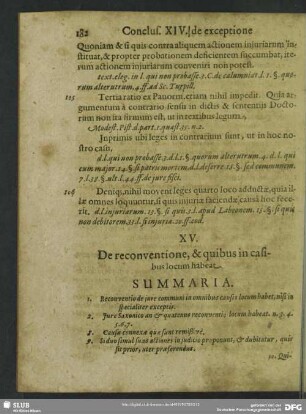 182 Conclus. XIV. de exceptione
Quoniam & si quis contra aliquem actionem injuriarum in-
stituat, & propter probationem deficientem succumbat, ite-
rum actionem injuriarum conveniri non potest.
text. eleg. in l. qui non probasse. 3. C. de calumniat. l. 1. §. quo-
rum alterutrum. 4. ff. ad Sc. Turpill.
Tertia ratio ex Panorm. etiam nihil impedit. Quia ar-
gumentum à contrario sensu in dictis & sententiis Docto-
rum non ita firmum est, ut in textibus legum.
Modest. Pist. d. part. 1. quæst. 35. n. 2.
Inprimis ubi leges in contrarium sunt, ut in hoc no-
stro casu,
d. l. qui non probasse. 3. d. l. 1. §. quorum alterutrum. 4. d. l. qui
cum major. 14. §.
7. l. 15. §. ult. l. 44. ff. de jure fisci.
104 Deniq; nihil movent leges quarto loco adductæ, quia il-
læ omnes loquuntur, si quis injuria faciendæ causâ hoc fece-
rit,
d. l. injuriarum. 13. §. si quis
non debitorem. 33. l. si injuriæ. 20. ff. eod.
XV.
De reconventione, & quibus in casi-
bus locum habeat.
SUMMARIA.
1. Reconventio de jure communi in omnibus causis locum habet, nisi in
specialiter exceptis.
2. Jure Saxonico an & quatenus reconventio locum habeat. n. 3. 4.
5. 6. 7.
8. Causæ connexæ quæ sint remissivè.
9. Si duo simul suas actiones in judicio proponant, & dubitatur, quis
sit prior, uter præferendus.
10. Qui-
SLUB
DFG